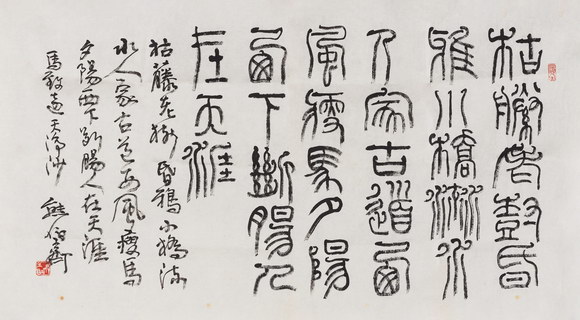 枯藤老樹昏
雅小橋流水
人家古道西
風瘦馬夕陽
西下斷腸人
在天涯
枯藤老樹昏鴉小橋流
水人家古道西風瘦馬
夕陽西下斷腸人在天涯
馬致遠天淨沙 熊伯齊